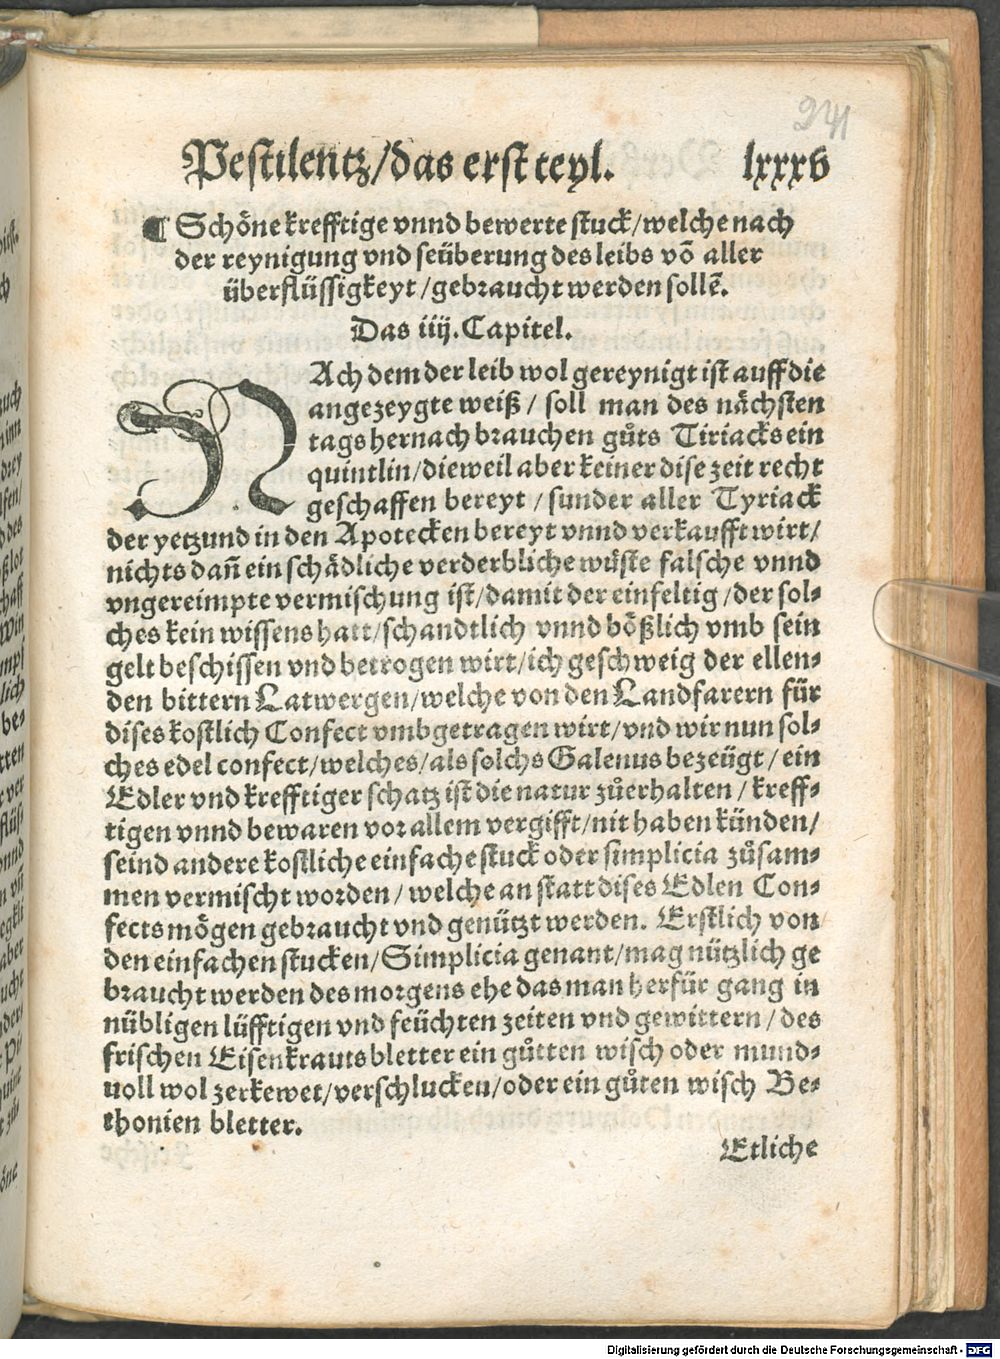 241
Pestilentz/das erst teyl. lxxxv
¶ Schöne krefftige vnnd bewerte stuck/welche nach
der reynigung vnd seüberung des leibs võ aller
überflüssigkeyt/gebraucht werden sollẽ.
Das iiij. Capitel.
NAch dem der leib wol gereynigt ist auff die
angezeygte weiß/ soll man des nächsten
tags hernach brauchen gůts Tiriacks ein
quintlin/dieweil aber keiner dise zeit recht
geschaffen bereyt/sunder aller Tyriack
der yetzund in den Apotecken bereyt vnnd verkaufft wirt/
nichts dañ ein schädliche verderbliche wüste falsche vnnd
vngereimpte vermischung ist/damit der einfeltig/der sol⸗
ches kein wissens hatt/schandtlich vnnd bößlich vmb sein
gelt beschissen vnd betrogen wirt/ich geschweig der ellen⸗
den bittern Latwergen/welche von den Landfarern für
dises kostlich Confect vmbgetragen wirt/vnd wir nun sol⸗
ches edel confect/welches/als solchs Galenus bezeügt/ein
Edler vnd krefftiger schatz ist die natur zůerhalten/kreff⸗
tigen vnnd bewaren vor allem vergifft/nit haben künden/
seind andere kostliche einfache stuck oder simplicia zůsam⸗
men vermischt worden/welche an statt dises Edlen Con⸗
fects mögen gebraucht vnd genützt werden. Erstlich von
den einfachen stucken/Simplicia genant/mag nützlich ge
braucht werden des morgens ehe das man herfür gang in
nübligen lüfftigen vnd feüchten zeiten vnd gewittern/des
frischen Eisenkrauts bletter ein gůtten wisch oder mund⸗
uoll wol zerkewet/verschlucken/oder ein gůten wisch Be⸗
thonien bletter.
Etliche
Digitalisierung gefördert durch die Deutsche Forschungsgemeinschaft - DFG